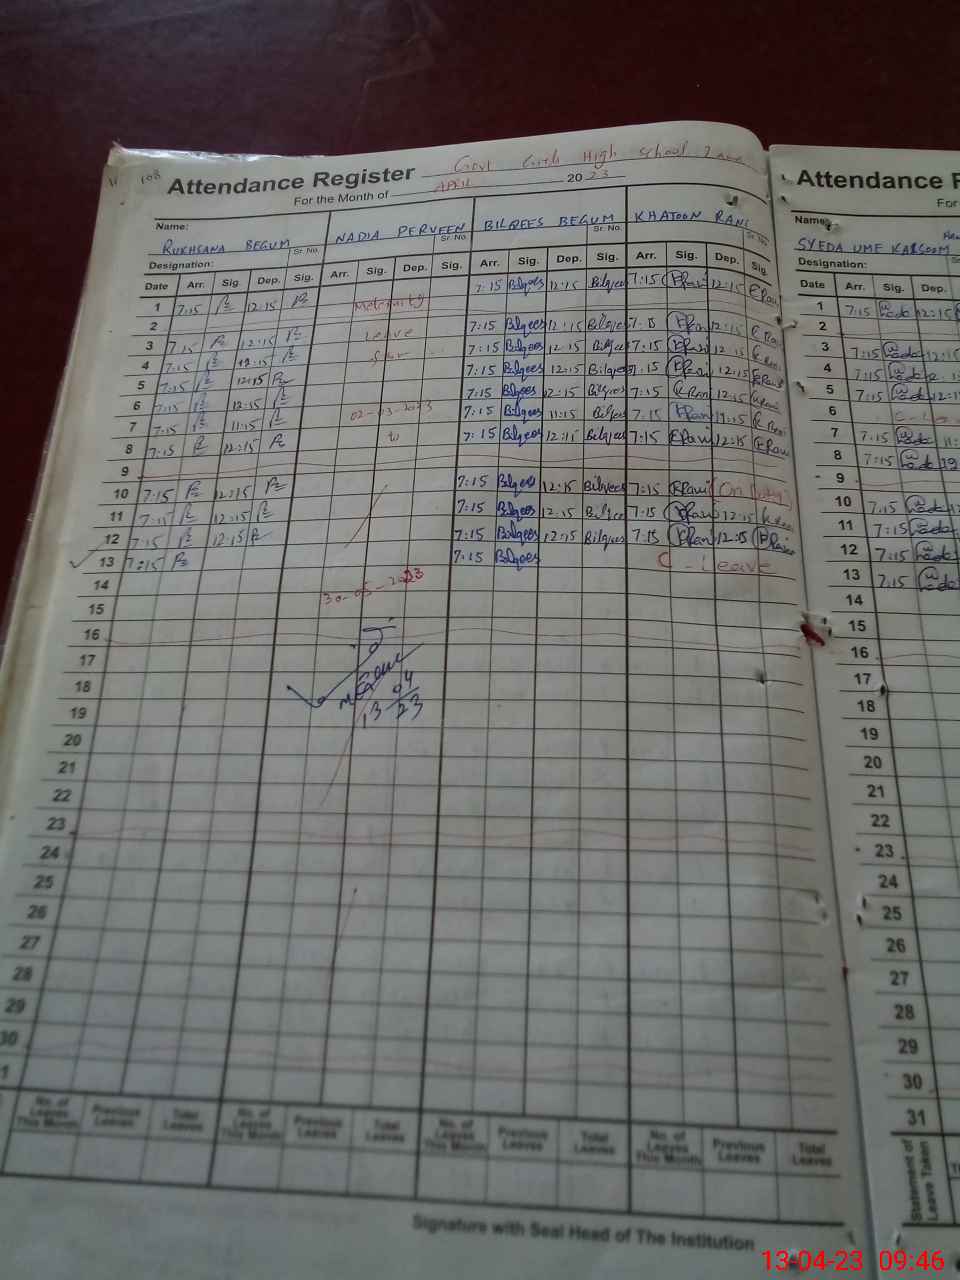 11 108
Attendance Register Govt Girls High School
For the Month of APRIL 2023
Name:
RUKHSANA BEGUM NADIA PERVEEN BILQEES BEGUM KHATOON RANI
Sr No. Sr No. Sr No. Sr No.
Designation:
Date Arr. Sig. Dep. Sig. Arr. Sig. Dep. Sig. Arr. Sig. Dep. Sig. Arr. Sig. Dep. Sig.
1 7:15 12:15 Maternity 7:15 Bilqees 12:15 Bilqees 7:15 KRani 12:15 KRani
2 Leave
3 7:15 12:15 for 7:15 Bilqees 12:15 Bilqees 7:15 KRani 12:15 KRani
4 7:15 12:15 7:15 Bilqees 12:15 Bilqees 7:15 KRani 12:15 KRani
5 7:15 12:15 7:15 Bilqees 12:15 Bilqees 7:15 KRani 12:15 KRani
6 7:15 12:15 02-03-2023 7:15 Bilqees 12:15 Bilqees 7:15 KRani 12:15 KRani
7 7:15 11:15 to 7:15 Bilqees 11:15 Bilqees 7:15 KRani 11:15 KRani
8 7:15 12:15 7:15 Bilqees 12:15 Bilqees 7:15 KRani 12:15 KRani
9
10 7:15 12:15 7:15 Bilqees 12:15 Bilqees 7:15 KRani (On Duty)
11 7:15 12:15 7:15 Bilqees 12:15 Bilqees 7:15 KRani 12:15 KRani
12 7:15 12:15 7:15 Bilqees 12:15 Bilqees 7:15 KRani 12:15 KRani
13 7:15 7:15 Bilqees C-Leave
14 30-05-2023
15
16
17
18 04
19 13 23
20
21
22
23
24
25
26
27
28
29
30
1
No. of Leaves This Month Previous Leaves Total Leaves No. of Leaves This Month Previous Leaves Total Leaves No. of Leaves This Month Previous Leaves Total Leaves No. of Leaves This Month Previous Leaves Total Leaves
Signature with Seal Head of The Institution
Attendance R
For
Name:
SYEDA UME KALSOOM
Designation:
Date Arr. Sig. Dep.
1 7:15 12:15
2
3 7:15 12:15
4 7:15
5 7:15
6
7 7:15 11:
8 7:15
9
10 7:15
11 7:15
12 7:15
13 7:15
14
15
16
17
18
19
20
21
22
23
24
25
26
27
28
29
30
31
Statement of Leave Taken
13-04-23 09:46